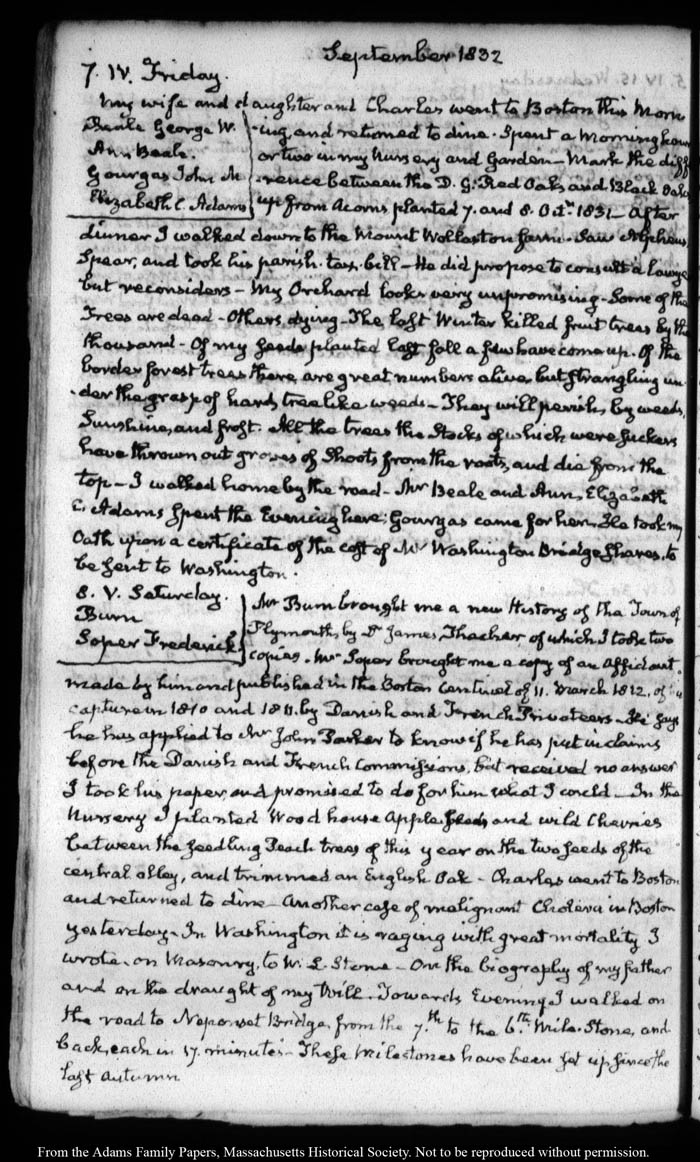 September 1832
7. IV. Friday.
My wife and daughter and Charles went to Boston this Morn
Beale George W.
Ann Beale.
Gourgas John M
Elizabeth C. Adams
-ing, and returned to dine. Spent a morning hour
or two in my Nursery and Garden — Mark the diff
rence between the D. G. Red Oaks and Black Oaks
up from Acorns planted 7. and 8. Oct. 1831 — After
dinner I walked down to the Mount Wollaston farm. Saw Alpheus
Spear, and took his parish tax bill — He did propose to consult a lawye
but reconsiders — My Orchard looks very unpromising — Some of the
Trees are dead — Others, dying — The last Winter killed fruit trees by th
thousand — Of my seeds planted last fall a few have come up. Of the
border forest trees there, are great numbers alive, but strangling un-
-der the grasp of hard, treelike weeds — They will perish, by weeds,
Sunshine, and frost. All the trees the Stocks of which were suckers
have thrown out groves of Shoots from the roots, and die from the
top — I walked home by the road — Mr Beale and Ann, Elizabeth
C. Adams spent the Evening here; Gourgas came for her. He took my
Oath upon a certificate of the cost of Mr Washington Bridge Shares, to
be sent to Washington.
8. V. Saturday.
Burn
Soper Frederick
Mr Burn brought me a new History of the Town of
Plymouth, by Dr James Thacher, of which I took two
copies. Mr Soper brought me a copy of an Affidavit
made by him and published in the Boston Centinel of 11. March 1812, of
capture in 1810 and 1811. by Danish and French Privateers — He says
he has applied to Mr John Parker to know if he has put in claims
before the Danish and French Commissions, but received no answer
I took his paper, and promised to do for him what I could — In the
Nursery I planted Wood house Apple seeds and wild Cherries
between the seedling Peach trees of this year on the two
of the
central alley, and trimmed an English Oak — Charles went to Boston
and returned to dine — Another case of malignant Cholera in Boston
yesterday. In Washington it is raging with great mortality I
wrote, on Masonry, to W. L. Stone — On the biography of my father
and on the draught of my Will. Towards Evening I walked on
the road to Neponset Bridge, from the 7.th to the 6.th Mile-Stone, and
back, each in 17. minutes — These Milestones have been set up since the
last autumn
From the Adams Family Papers, Massachusetts Historical Society. Not to be reproduced without permission.